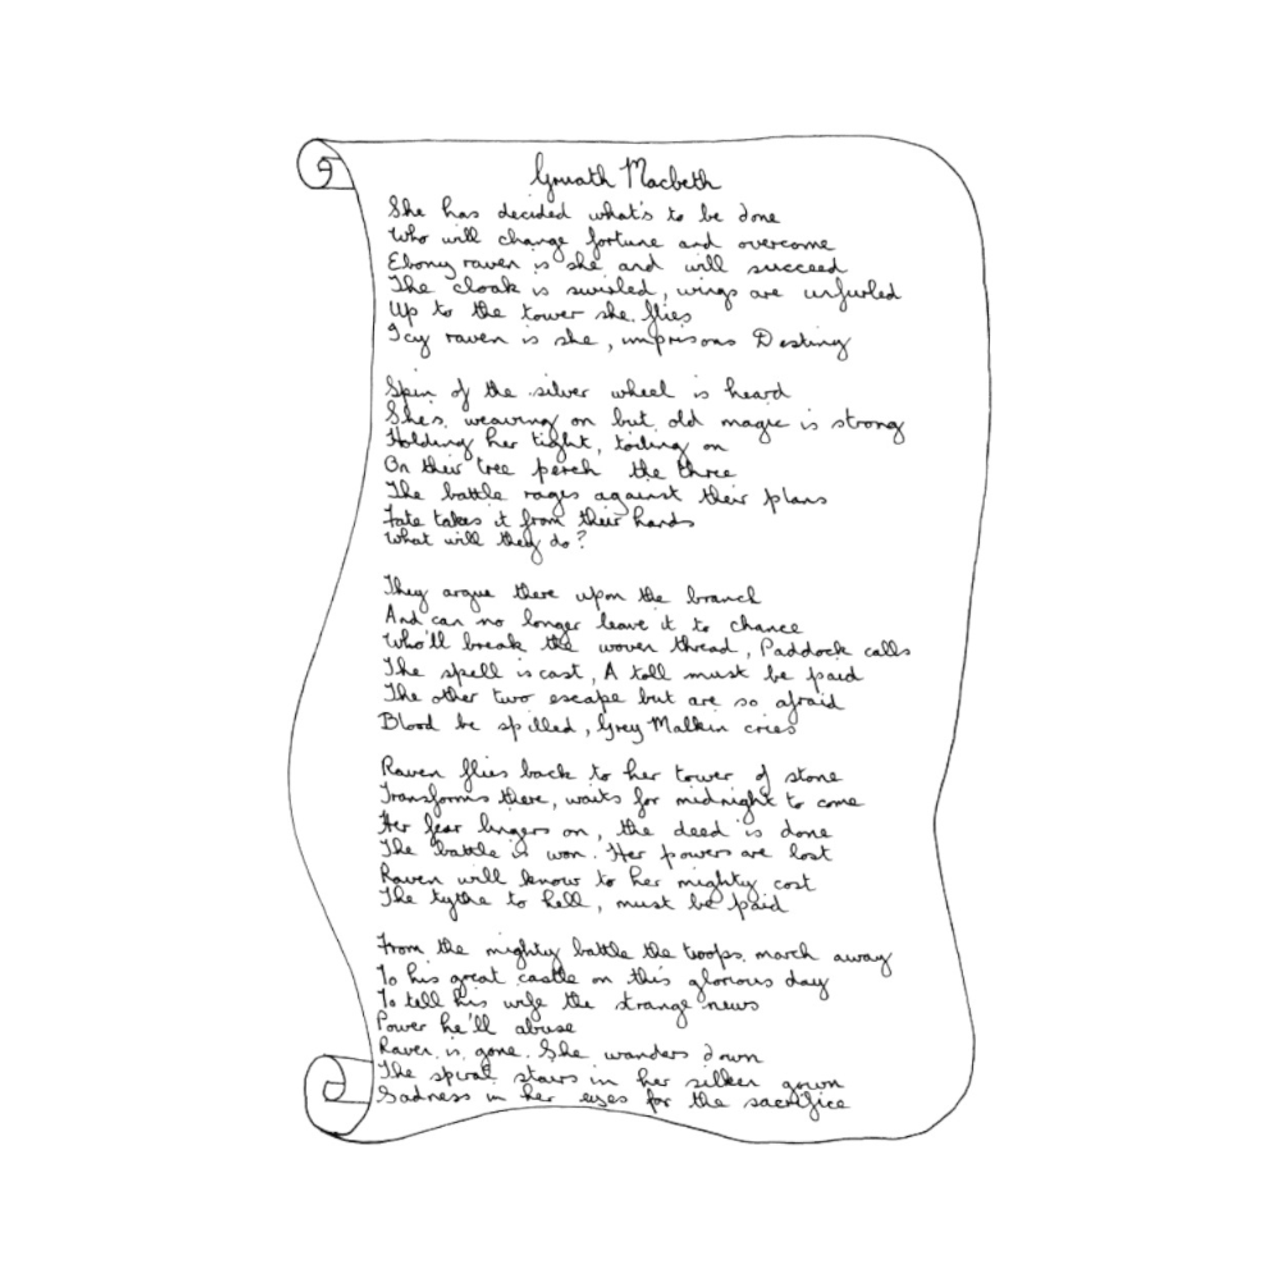 Gruath Macbeth
She has decided what's to be done
Who will change fortune and overcome
Ebony raven is she and will succeed
The cloak is swirled, wings are unfurled
Up to the tower she flies
Icy raven is she, imprisons Destiny
Spin of the silver wheel is heard
She's weaving on but old magic is strong
Holding her tight, toiling on
On their tree perch the three
The battle rages against their plans
Fate takes it from their hands
What will they do?
They argue there upon the branch
And can no longer leave it to chance
Who'll break the woven thread, Paddock calls
The spell is cast, A toll must be paid
The other two escape but are so afraid
Blood be spilled, Grey Malkin cries
Raven flies back to her tower of stone
Transforms there, waits for midnight to come
Her fear lingers on, the deed is done
The battle is won. Her powers are lost
Raven will know to her mighty cost
The tythe to hell, must be paid
From the mighty battle the troops march away
To his great castle on this glorious day
To tell his wife the strange news
Power he'll abuse
Raven is gone. She wanders down
The spiral stairs in her silken gown
Sadness in her eyes for the sacrifice